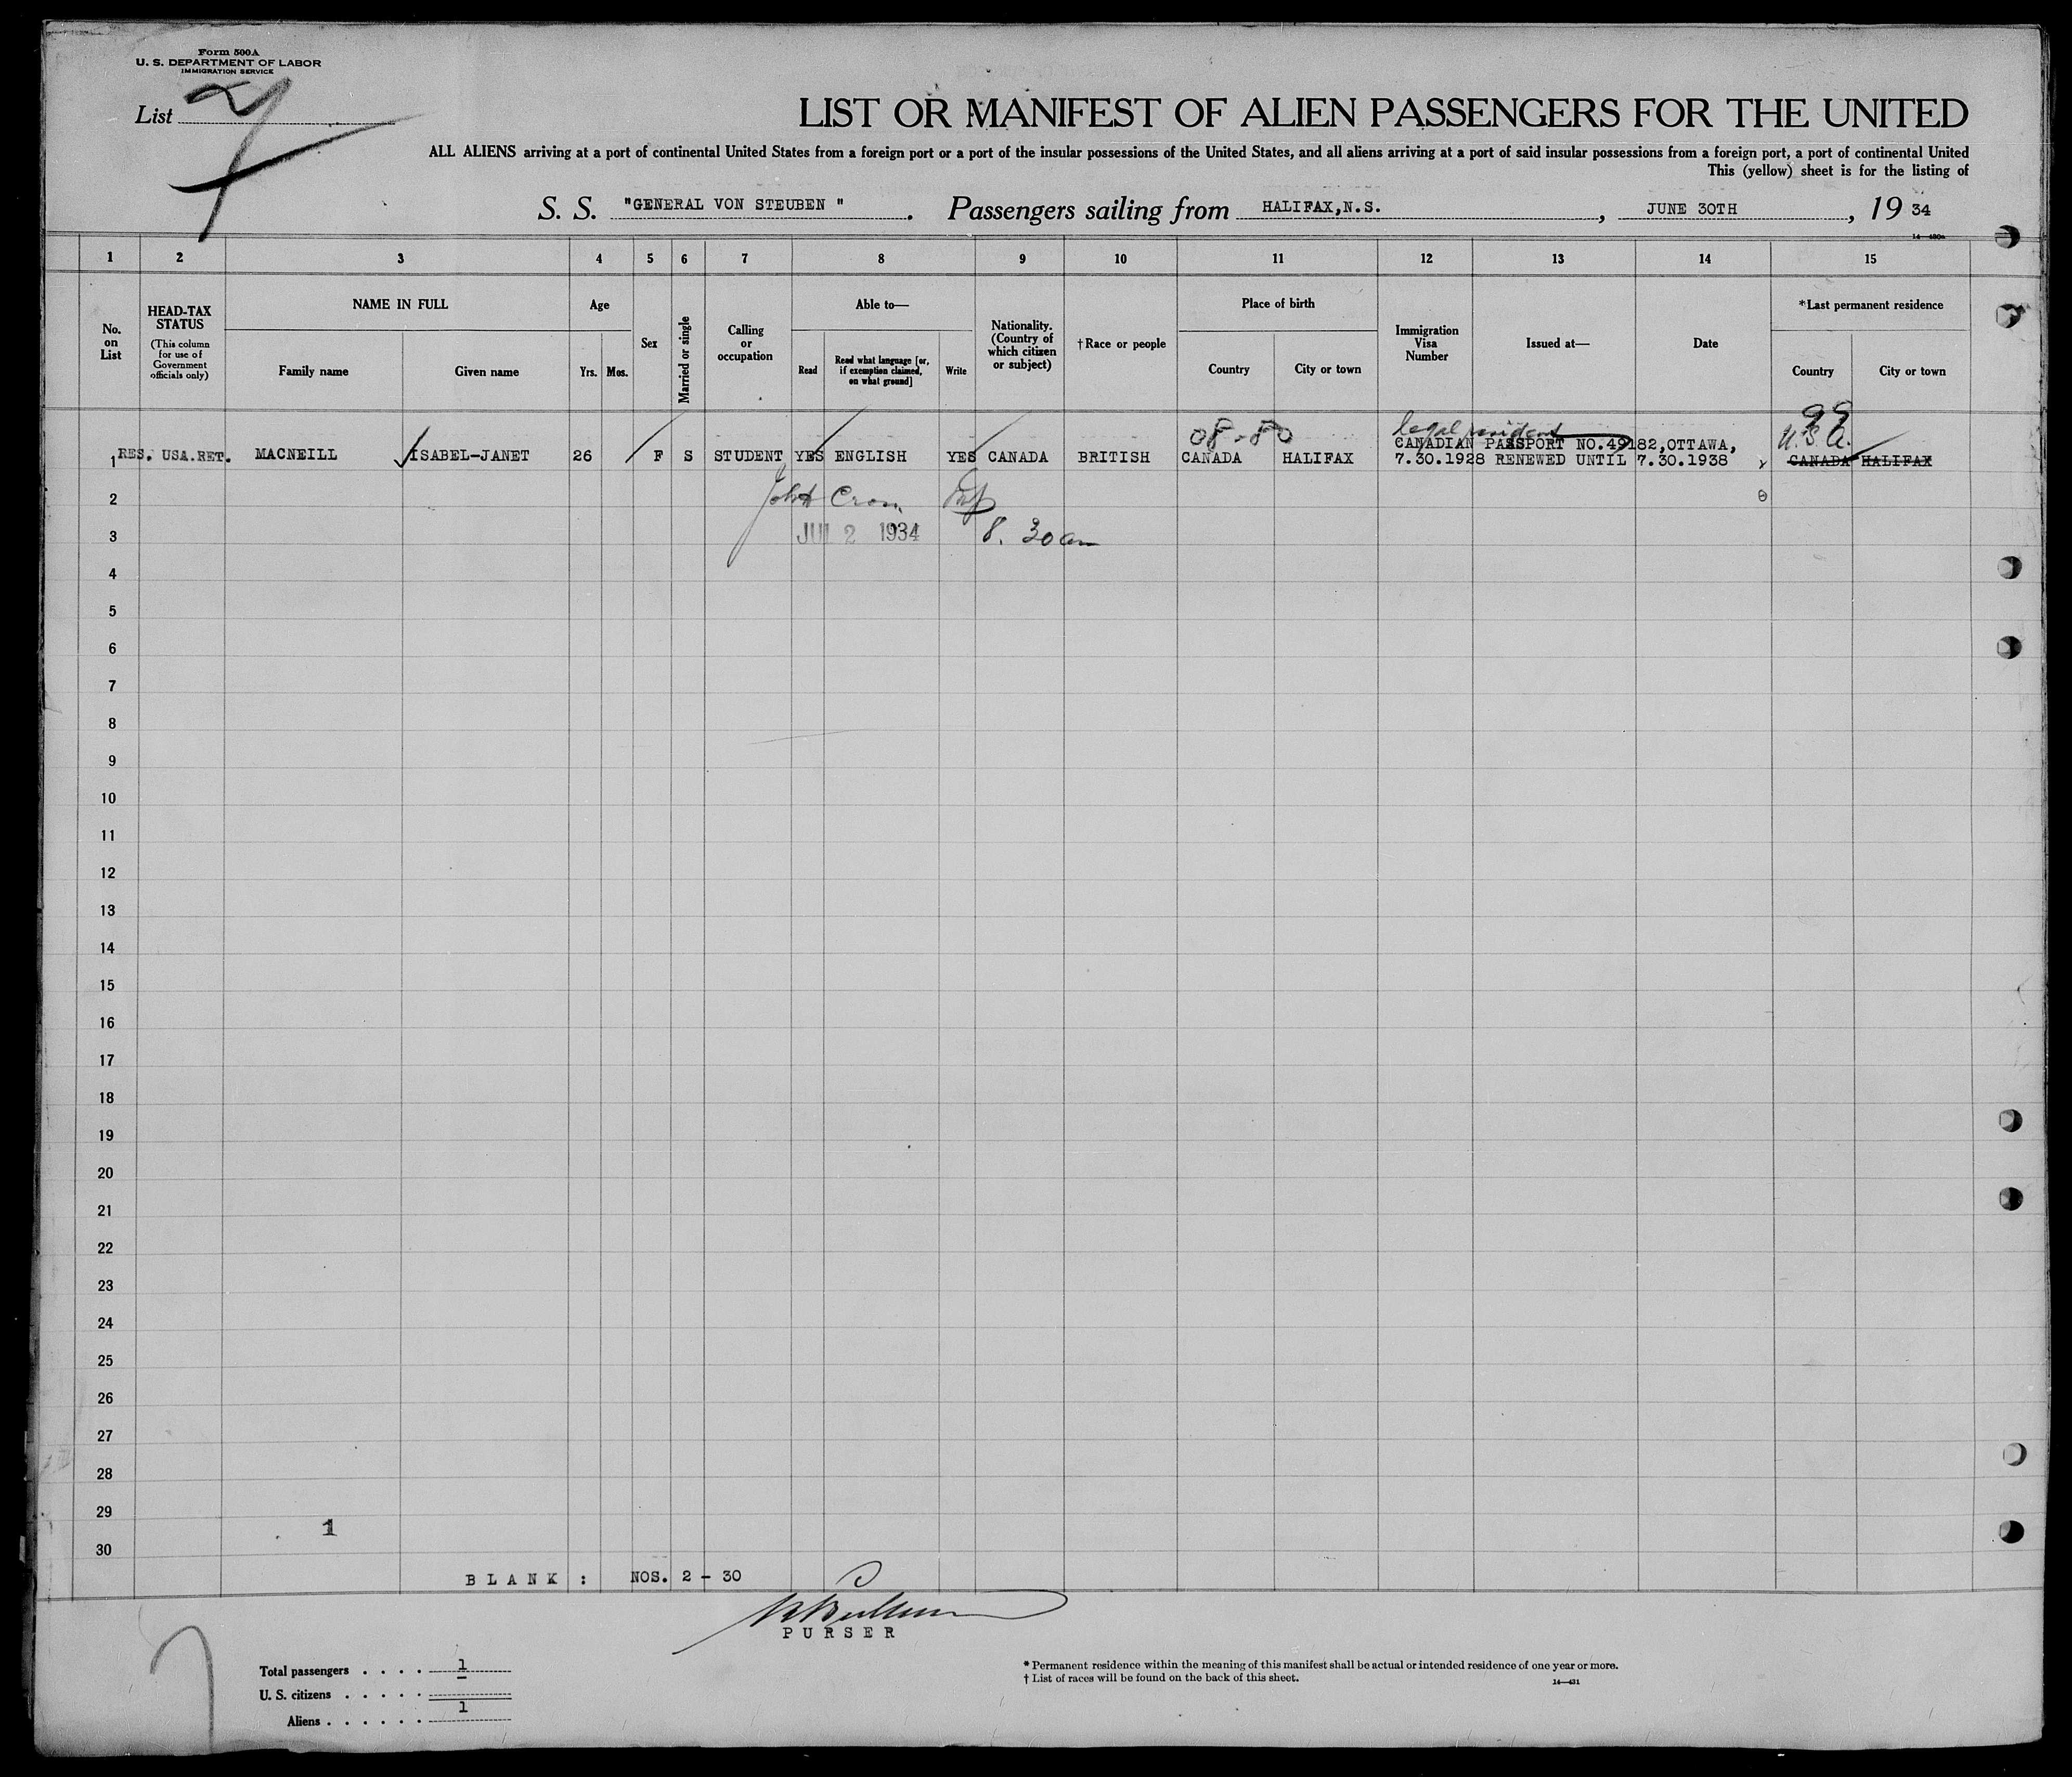 Form 500A
U. S. DEPARTMENT OF LABOR
IMMIGRATION SERVICE
List 7
LIST OR MANIFEST OF ALIEN PASSENGERS FOR THE UNITED
ALL ALIENS arriving at a port of continental United States from a foreign port or a port of the insular possessions of the United States, and all aliens arriving at a port of said insular possessions from a foreign port, a port of continental United
This (yellow) sheet is for the listing of
S. S. "GENERAL VON STEUBEN ". Passengers sailing from HALIFAX,N.S., JUNE 30TH, 19 34
1 2 3 4 5 6 7 8 9 10 11 12 13 14 15
No. on List
HEAD-TAX STATUS
(This column for use of Government officials only)
NAME IN FULL
Family name Given name
Age
Yrs. Mos.
Sex
Married or single
Calling or occupation
Able to—
Read
Read what language [or, if exemption claimed, on what ground]
Write
Nationality. (Country of which citizen or subject)
†Race or people
Place of birth
Country City or town
Immigration Visa Number
Issued at—
Date
*Last permanent residence
Country City or town
08-80 legal resident 99
CANADIAN PASSPORT NO.49182,OTTAWA, U.S.A.
1 RES. USA.RET. MACNEILL ISABEL-JANET 26 F S STUDENT YES ENGLISH YES CANADA BRITISH CANADA HALIFAX 7.30.1928 RENEWED UNTIL 7.30.1938 CANADA HALIFAX
2 John
3 JUL 2 1934 8.30am
4
5
6
7
8
9
10
11
12
13
14
15
16
17
18
19
20
21
22
23
24
25
26
27
28
29
1
30
BLANK : NOS. 2 - 30
PURSER
Total passengers . . . . 1
U. S. citizens . . . . .
Aliens . . . . . . 1
* Permanent residence within the meaning of this manifest shall be actual or intended residence of one year or more.
† List of races will be found on the back of this sheet.
14—431